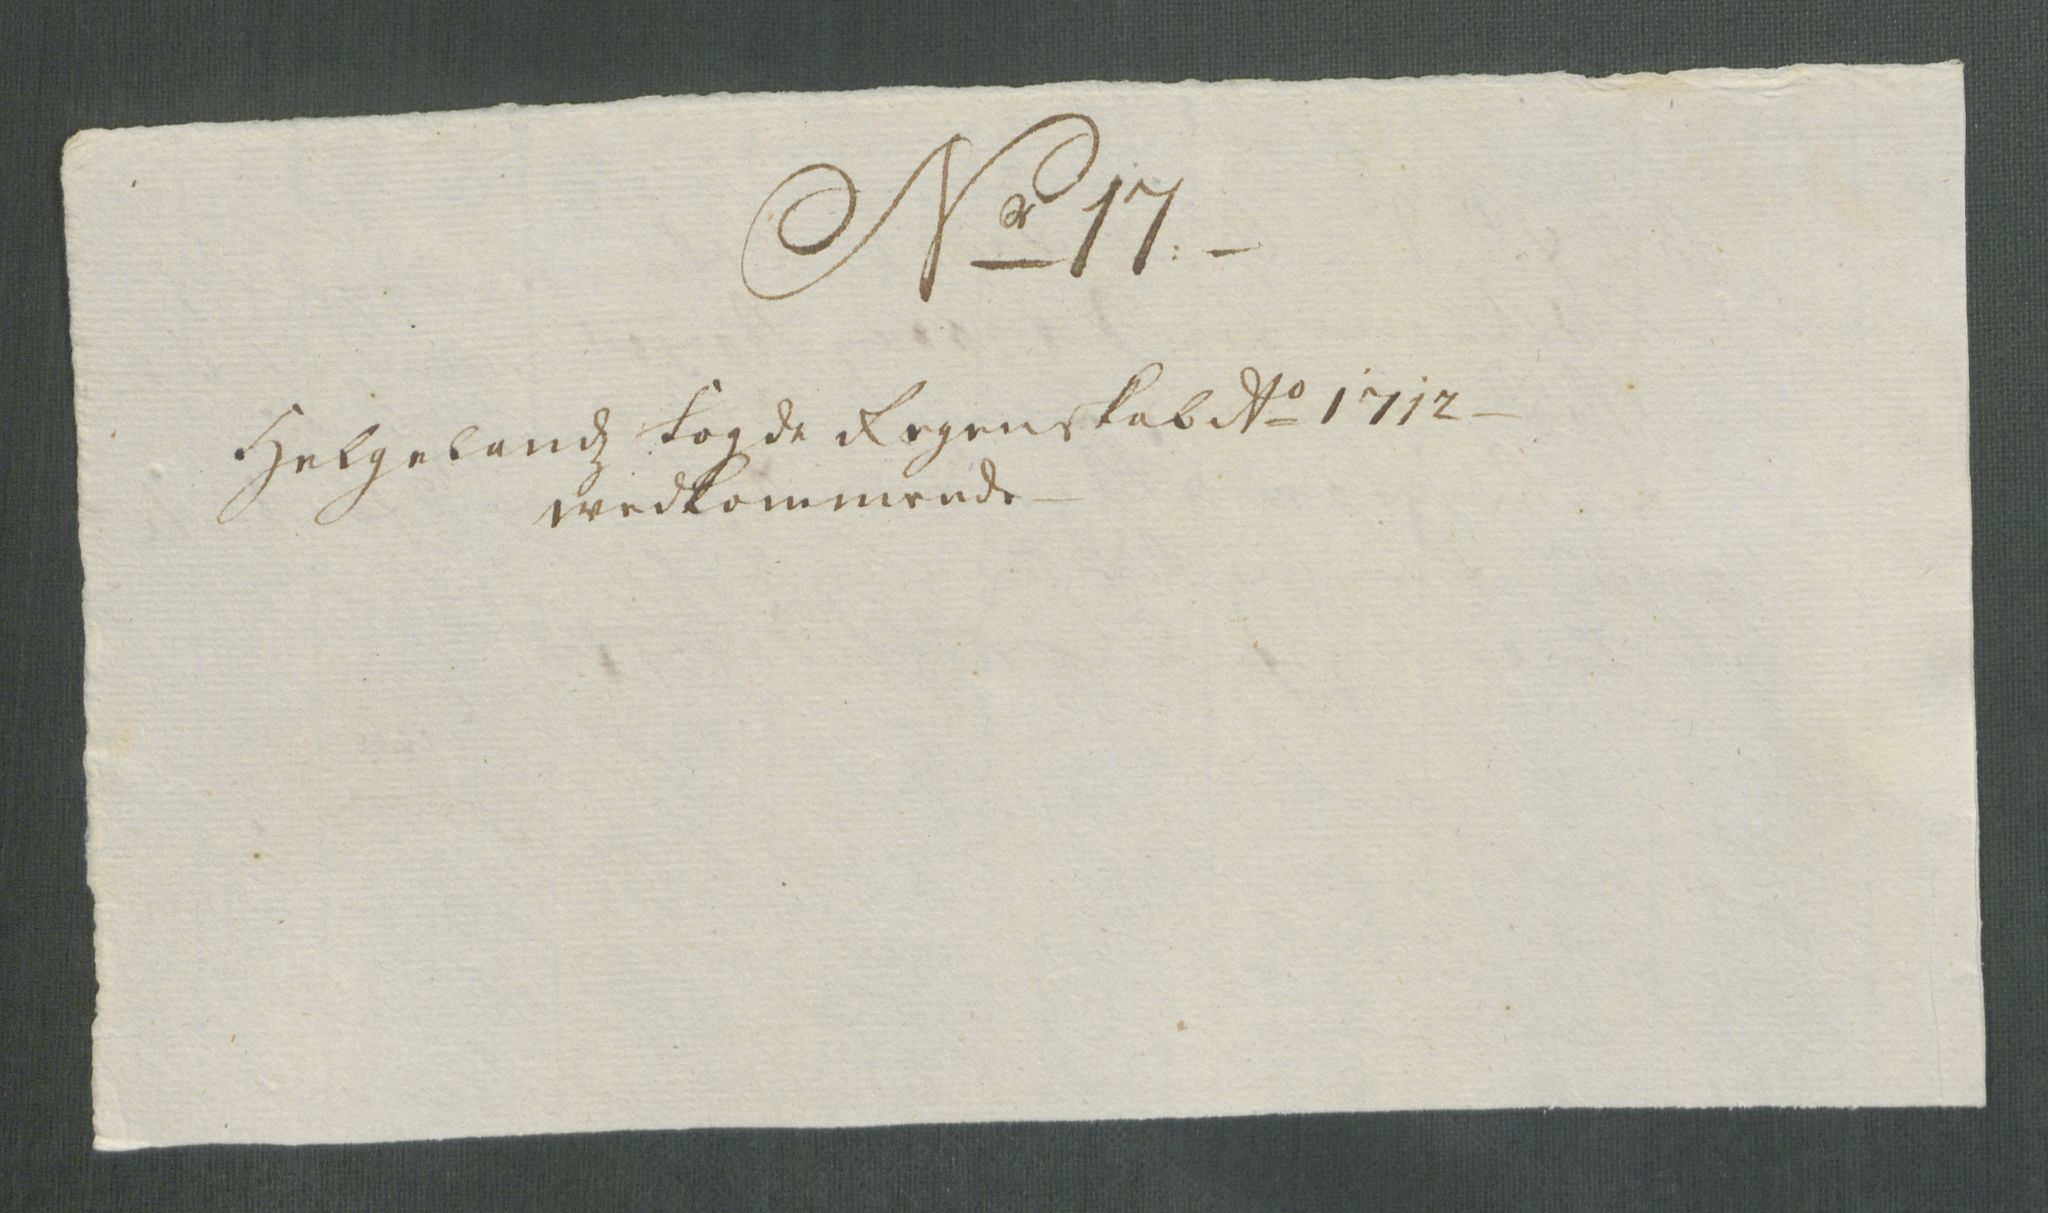 No 17.-
Helgelands Fogde Regenskab Ao 1712-
wedkommende-